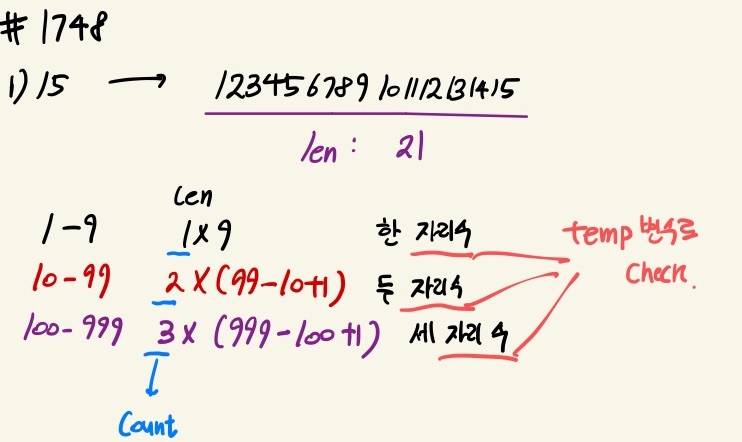 # 1748
1) 15 → 123456789101112131415
len : 21
len
1-9 1×9 한 자리수
10-99 2×(99-10+1) 두 자리수
100-999 3×(999-100+1) 세 자리수
temp 변수로
Check.
Count